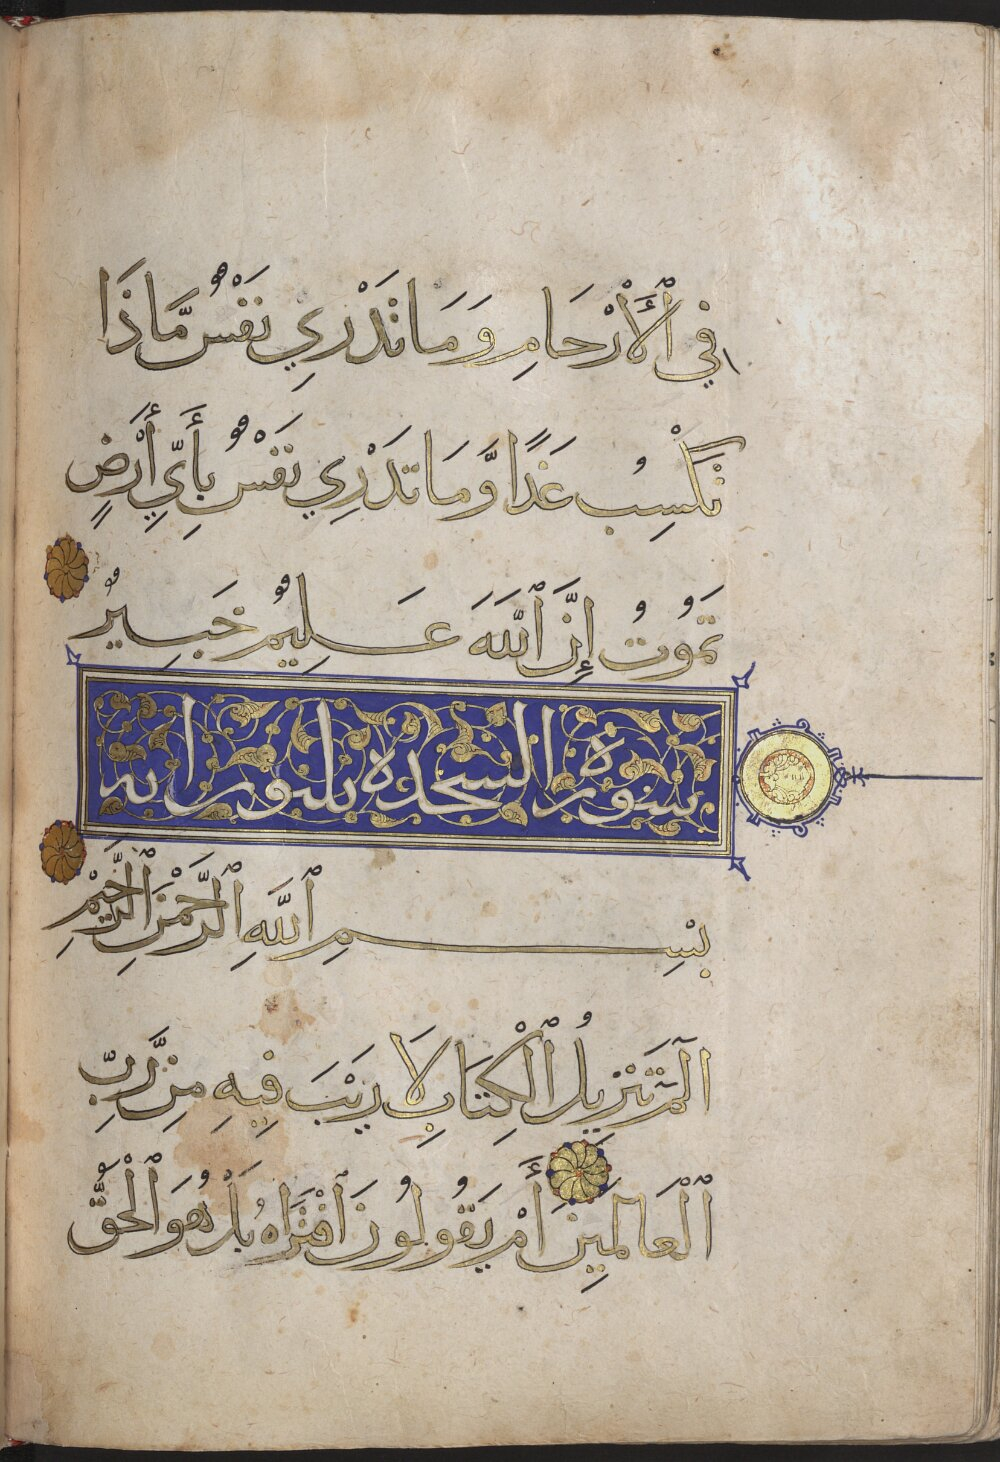 فِي ٱلْأَرْحَامِ وَمَا تَدْرِي نَفْسٌ مَّاذَا
تَكْسِبُ غَدًا وَّمَا تَدْرِي نَفْسٌ بِأَيِّ أَرْضٍ
تَمُوتُ إِنَّ ٱللَّهَ عَلِيمٌ خَبِيرٌ
سورة السجدة ثلثون اية
بِسْمِ ٱللَّهِ ٱلرَّحْمٰنِ ٱلرَّحِيْمِ
الٓمٓ تَنزِيلُ ٱلْكِتَابِ لَا رَيْبَ فِيهِ مِن رَّبِّ
ٱلْعَالَمِينَ أَمْ يَقُولُونَ ٱفْتَرَاهُ بَلْ هُوَ ٱلْحَقُّ